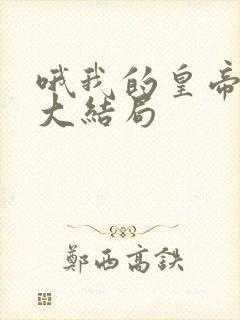 哦我的皇帝
大结局
鄭西高鉄